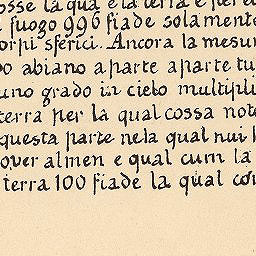 osse la qua e la terra e per
fuogo 996 fiade solamente
orpi sferici. Ancora la mesur
abiano a parte a parte tu
uno grado in cielo multipli
terra per la qual cossa note
questa parte nela qual nui h
over almen e qual cum la
terra 100 fiade la qual con